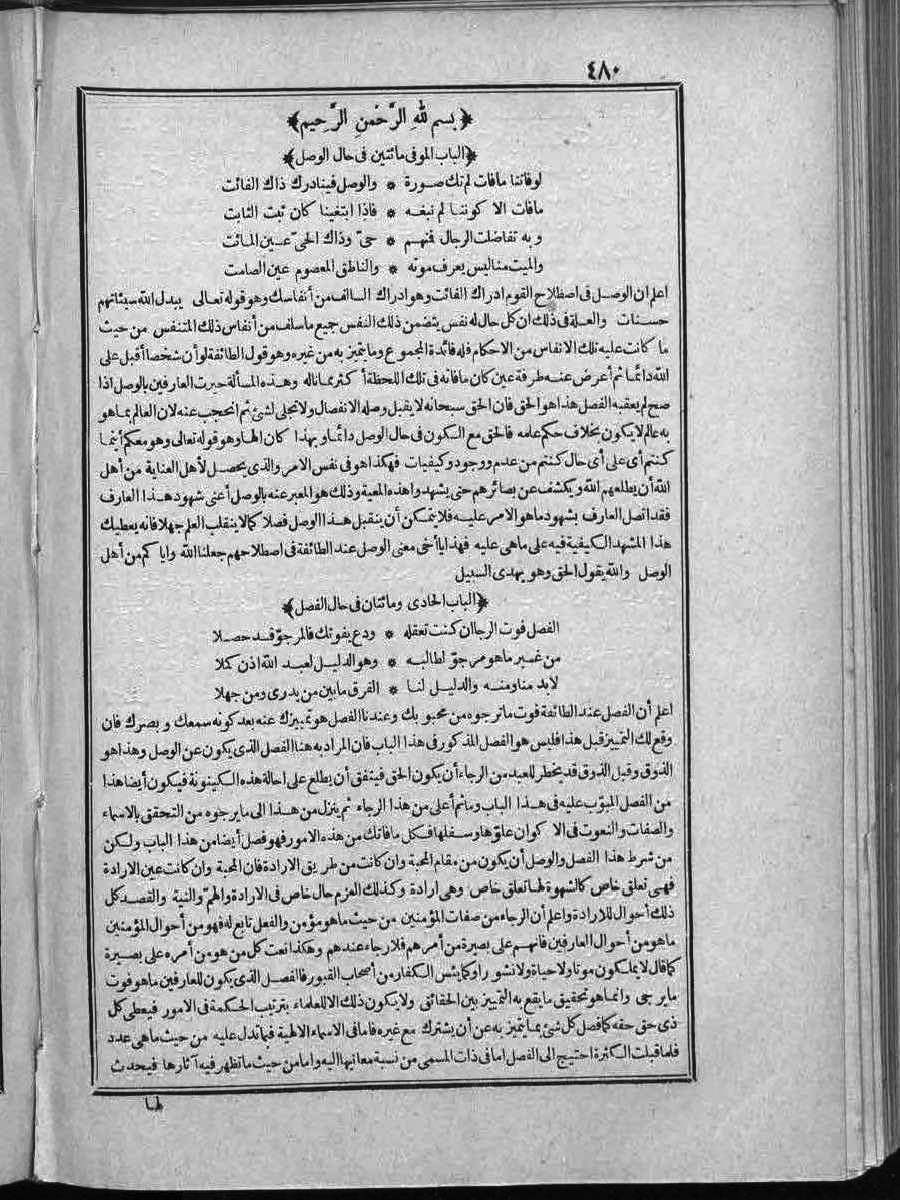 ٤٨٠
﴿بسم الله الرَّحْمنِ الرَّحِيمِ﴾
﴿الباب الموفى مائتين فى حال الوصل﴾
لو فاتنا ما فات لم تك صورة * والوصل فينا درك ذاك الفائت
ما فات الا كوننا لم نبغه * فاذا ابتغينا كان ثبت الثابت
وبه تفاضلت الرجال فنهم * حىّ وذاك الحىّ عين المائت
والميت منا ليس يعرف موته * والناطق المعصوم عين الصامت
اعلم ان الوصل فى اصطلاح القوم ادراك الفائت وهو ادراك السالف من أنفاسك وهو قوله تعالى يبدل الله سيئاتهم
حسنات والعلة فى ذلك ان كل حال له نفس يتضمن ذلك النفس جميع ما سلف من أنفاس ذلك المتنفس من حيث
ما كانت عليه تلك الانفاس من الاحكام فله فائدة المجموع وما يتميز به من غيره وهو قول الطائفة لو أن شخصا أقبل على
الله دائما ثم أعرض عنه طرفة عين كان ما فاته فى تلك اللحظة أكثر مما ناله وهذه المسألة حيرت العارفين بالوصل اذا
صح لم يعقبه الفصل هذا هو الحق فان الحق سبحانه لا يقبل وصله الانفصال ولا تجلى لشئ ثم انحجب عنه لان العالم بما هو
به عالم لا يكون بخلاف حكم علمه فالحق مع السكون فى حال الوصل دائما وبهذا كان الها وهو قوله تعالى وهو معكم أينما
كنتم أى على أى حال كنتم من عدم ووجود وكيفيات فهكذا هو فى نفس الامر والذى يحصل لأهل العناية من أهل
الله أن يطلعهم الله ويكشف عن بصائرهم حتى يشهدوا هذه المعية وذلك هو المعبر عنه بالوصل أعنى شهود هذا العارف
فقد اتصل العارف بشهود ما هو الامر عليه فلا يتمكن أن ينقبل هذا الوصل فصلا كما لا ينقلب العلم جهلا فانه يعطيك
هذا المشهد الكيفية فيه على ما هى عليه فهذا يا أخى معنى الوصل عند الطائفة فى اصطلاحهم جعلنا الله واياكم من أهل
الوصل والله يقول الحق وهو يهدى السبيل
﴿الباب الحادى ومائتان فى حال الفصل﴾
الفصل فوت الرجا ان كنت تعقله * ودع يفوتك فالمرجوّ قد حصلا
من غير ما هو مرجوّ لطالبه * وهو الدليل لعبد الله اذ كملا
لا بد منا ومنه والدليل لنا * الفرق ما بين من يدرى ومن جهلا
اعلم أن الفصل عند الطائفة فوت ما ترجوه من محبوبك وعندنا الفصل هو تمييزك عنه بعد كونه سمعك وبصرك فان
وقع لك التمييز قبل هذا فليس هو الفصل المذكور فى هذا الباب فان المراد به هنا الفصل الذى يكون عن الوصل وهذا هو
الذوق وقبل الذوق قد يخطر للعبد من الرجاء أن يكون الحق فيتفق أن يطلع على احالة هذه الكينونة فيكون أيضا هذا
من الفصل المبوّب عليه فى هذا الباب وما ثم أعلى من هذا الرجاء ثم ينزل من هذا الى ما يرجوه من التحقق بالاسماء
والصفات والنعوت فى الاكوان علوّها وسفلها فكل ما فاتك من هذه الامور فهو فصل أيضا من هذا الباب ولكن
من شرط هذا الفصل والوصل أن يكون من مقام المحبة وان كانت من طريق الارادة فان المحبة وان كانت عين الارادة
فهى تعلق خاص كالشهوة لها تعلق خاص وهى ارادة وكذلك العزم حال خاص فى الارادة والهمّ والنية والقصد كل
ذلك أحوال للارادة واعلم أن الرجاء من صفات المؤمنين من حيث ما هو مؤمن والفعل تابع له فهو من أحوال المؤمنين
ما هو من أحوال العارفين فانهم على بصيرة من أمرهم فلا رجاء عندهم وهكذا نعت كل من هو من أمره على بصيرة
كما قال لا يملكون موتا ولا حياة ولا نشورا وكما يئس الكفار من أصحاب القبور فالفصل الذى يكون للعارفين ما هو فوت
ما يرجى وانما هو تحقيق ما يقع به التمييز بين الحقائق ولا يكون ذلك الا للعلماء بترتيب الحكمة فى الامور فيعطى كل
ذى حق حقه كما فصل كل شئ بما يتميز به عن أن يشترك مع غيره فاما فى الاسماء الالهية فبما تدل عليه من حيث ما هى عدد
فلما قبلت الكثرة احتيج الى الفصل اما فى ذات المسمى من نسبة معانيها اليه واما من حيث ما تظهر فيه آثارها فيحدث
لها